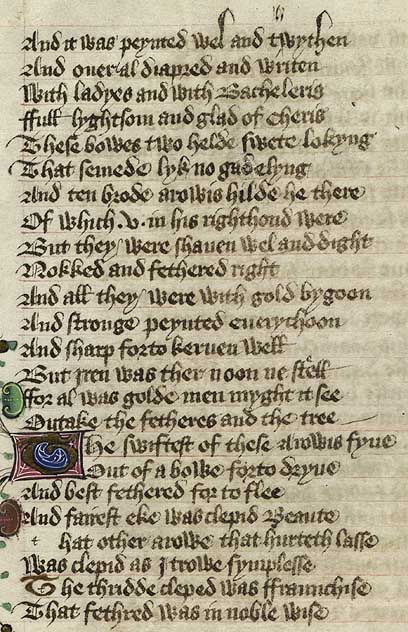 And it was peynted wel and twythen
And ouer al diapred and writen
With ladyes and with Bacheleris
ffull lyghtsom and glad of cheris
These bowes two helde swete lokyng
That semede lyk no gadelyng
And ten brode arowis hilde he there
Of which .v. in his righthond were
But they were shauen wel and dight
Nokked and fethered right
And all they were with gold bygoon
And stronge peynted euerychoon
And sharp forto keruen well
But iren was ther noon ne stell
ffor al was golde men myght it see
Outake the fetheres and the tree
The swiftest of these arowis fyue
Out of a bowe forto dryue
And best fethered for to flee
And fairest eke was clepid Beaute
t hat other arowe that hurteth lasse
Was clepid as I trowe symplesse
The thridde cleped was ffraunchise
That fethred was in noble wise